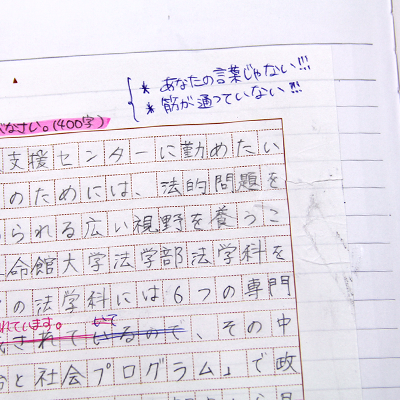 * あなたの言葉じゃない!!!
* 筋が通っていない!!!
なさい。(400字)
支援センターに勤めたい
のためには、法的問題を
られる広い視野を養うこ
命館大学法学部法学科を
の法学科には6つの専門
れています。
いて
されているので、その中
と社会プログラム」で政